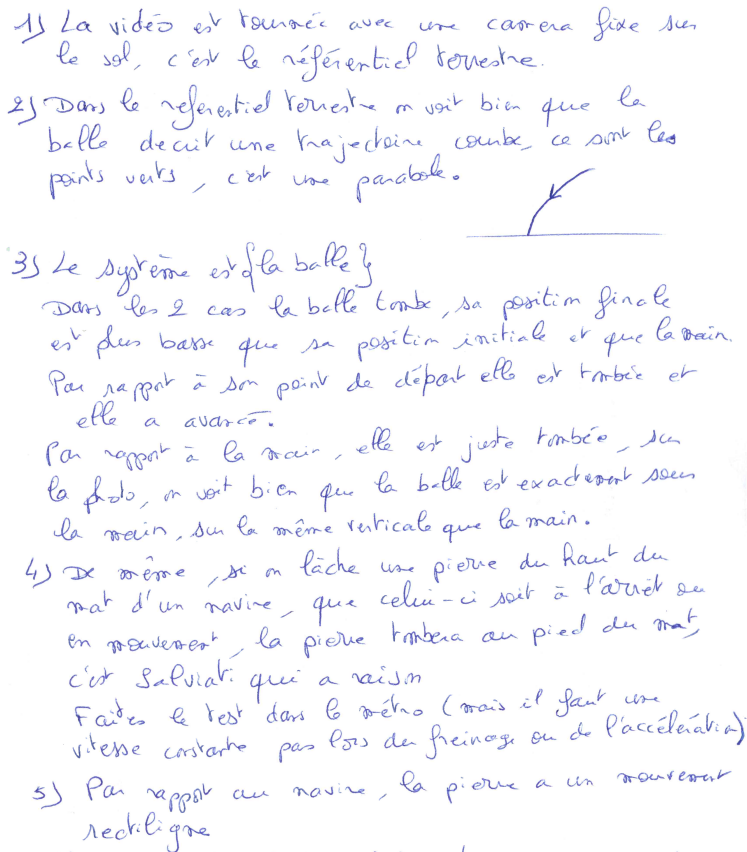 1) La vidéo est tournée avec une camera fixe sur
le sol, c'est le référentiel terrestre.
2) Dans le referentiel terrestre on voit bien que la
balle decrit une trajectoire courbe, ce sont les
points verts, c'est une parabole.
3) Le système est {la balle}
Dans les 2 cas la balle tombe, sa position finale
est plus basse que sa position initiale et que la main.
Par rapport à son point de départ elle est tombée et
elle a avancé.
Par rapport à la main, elle est juste tombée, sur
la photo, on voit bien que la balle est exactement sous
la main, sur la même verticale que la main.
4) De même, si on lâche une pierre du haut du
mat d'un navire, que celui-ci soit à l'arrêt ou
en mouvement, la pierre tombera au pied du mat,
c'est Salviati qui a raison
Faites le test dans le métro (mais il faut une
vitesse constante pas lors du freinage ou de l'accélération)
5) Par rapport au navire, la pierre a un mouvement
rectiligne